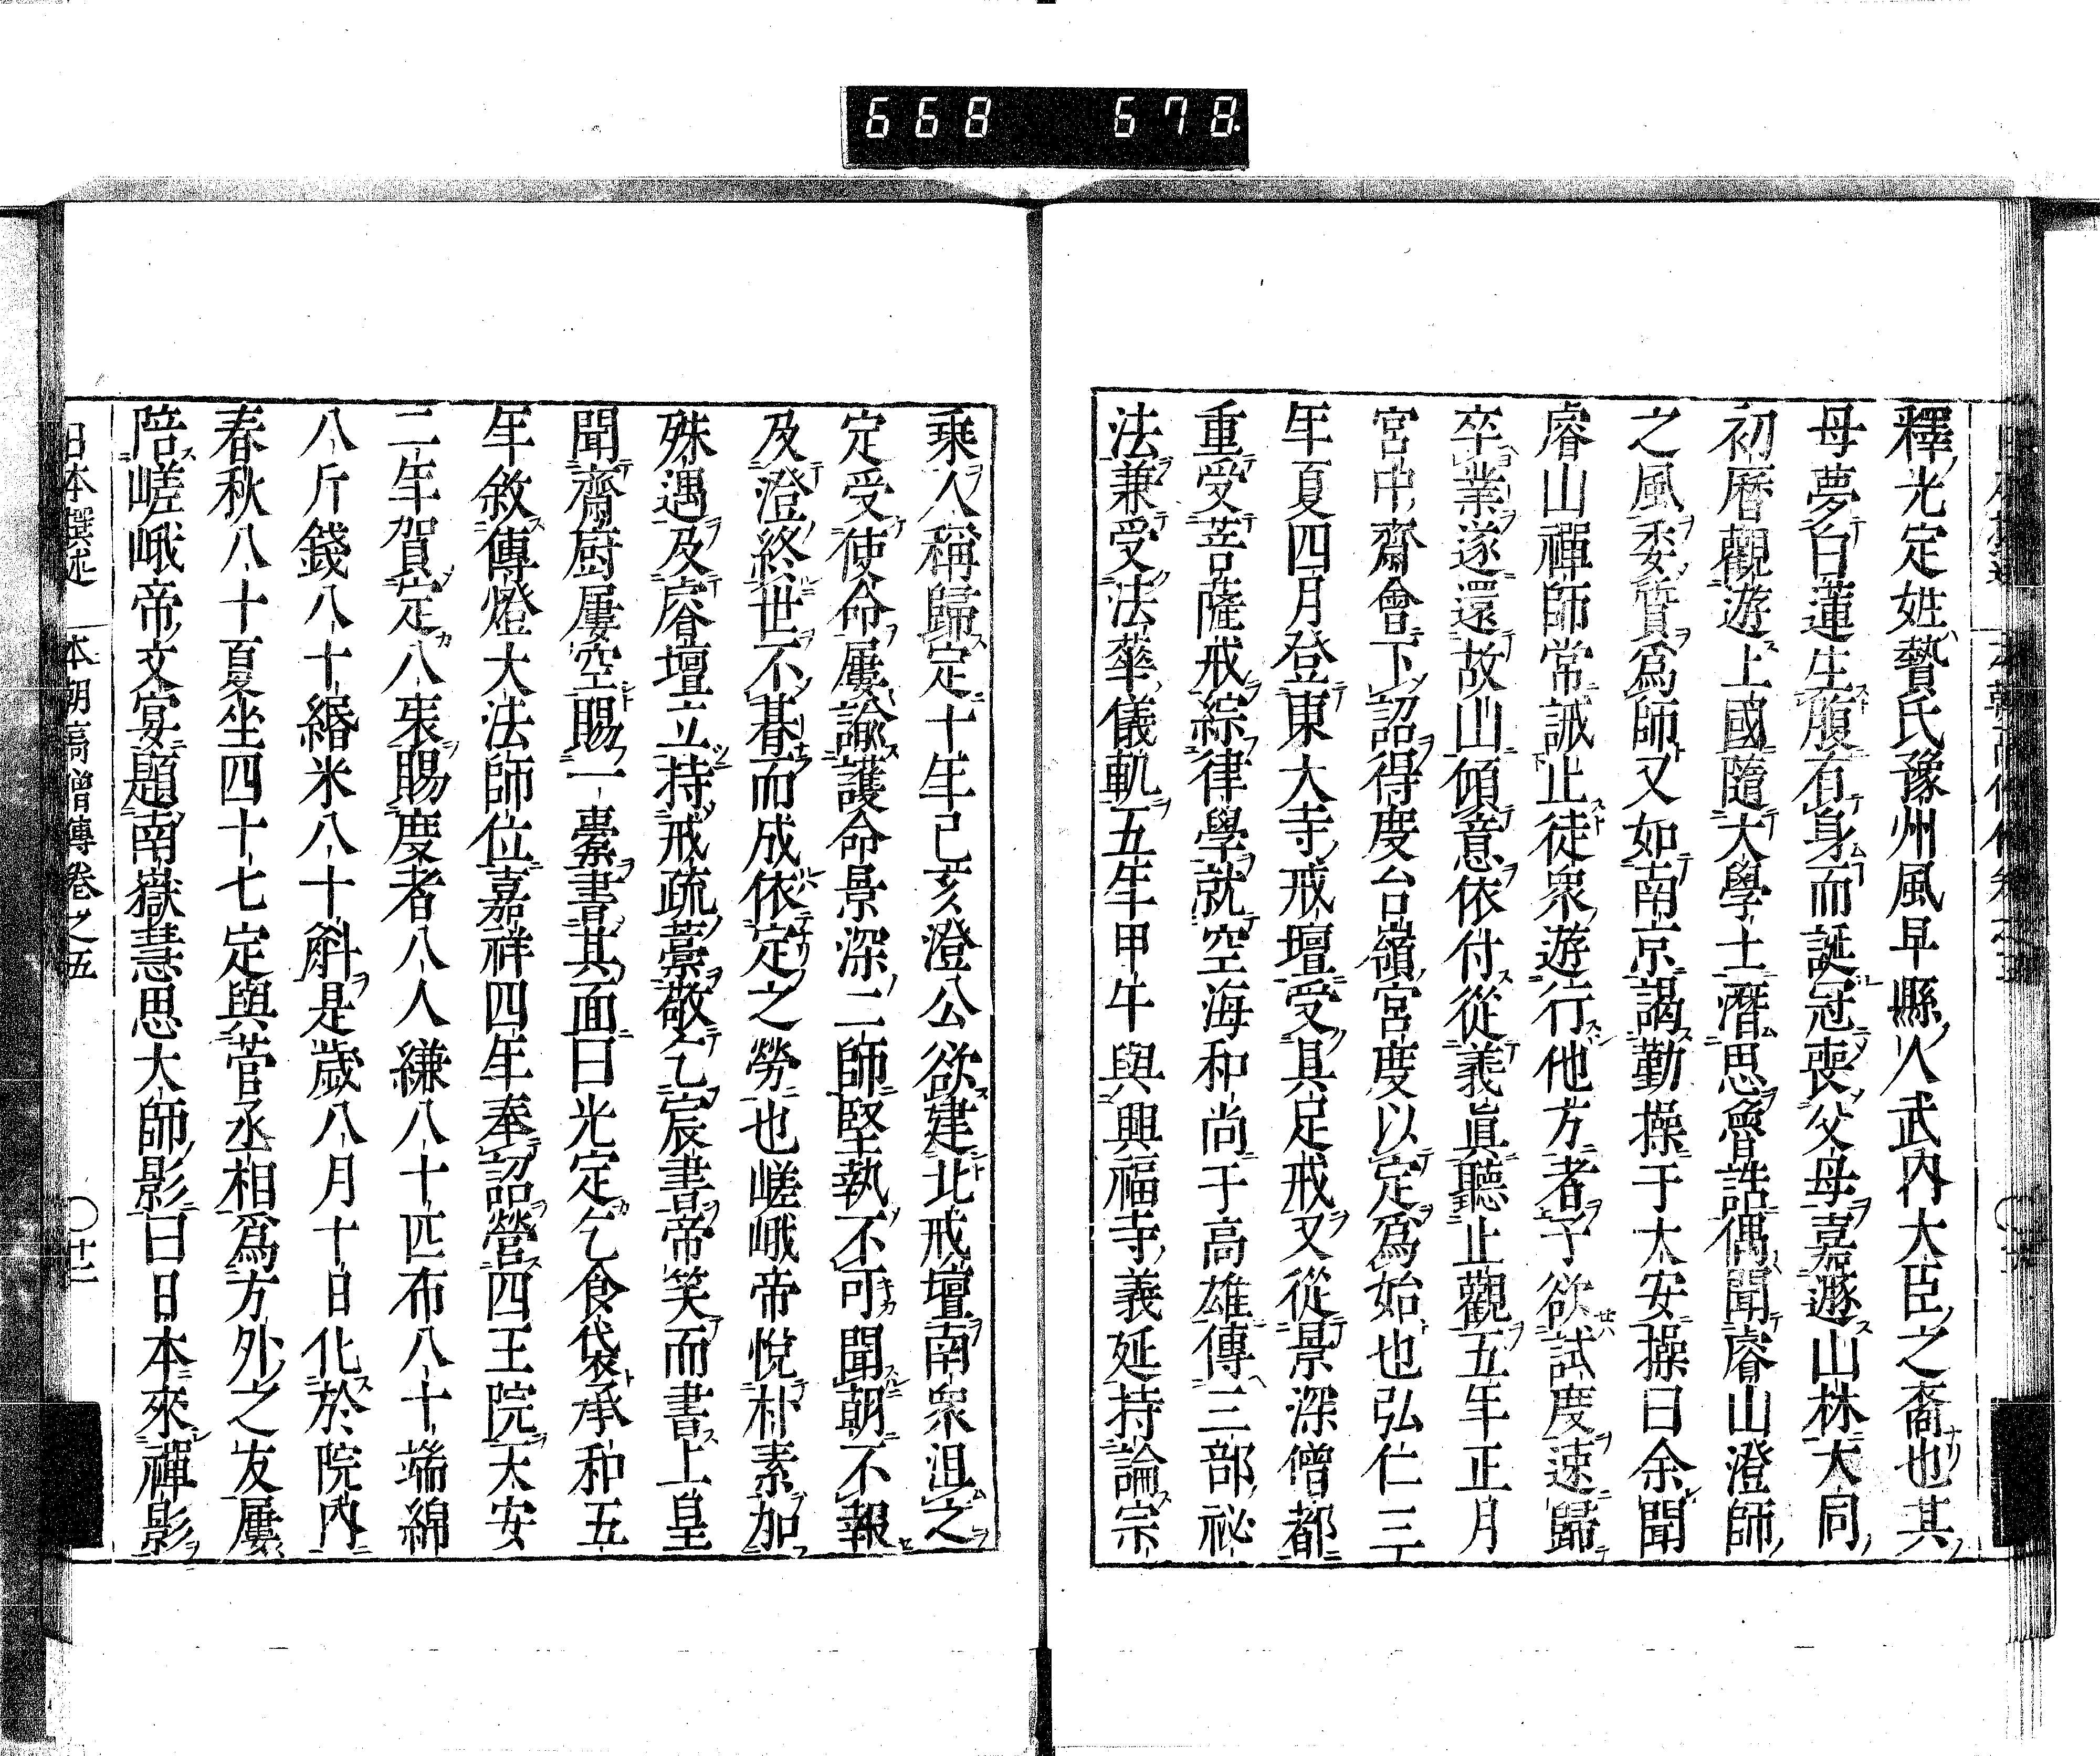 668 678.
釋光定姓贄氏豫州風早縣人武內大臣之裔也其
母夢白蓮生頂有身而誕冠喪父母嘉遯山林大同
初曆觀遊上國隨大學士潛思魯誥偶聞睿山澄師
之風委質爲師又如南京謁勤操于大安操曰余聞
睿山禪師常誡止徒衆遊行他方者予欲試度速歸
卒業遂還故山傾意依付從義眞聽止觀五年正月
宮中齋會下詔得度台嶺宮度以定爲始也弘仁三
年夏四月登東大寺戒壇受具足戒又從景深僧都
重受菩薩戒綜律學就空海和尚于高雄傳三部祕
法兼受法華儀軌五年甲午與興福寺義延持論宗
乘人稱歸定十年己亥澄公欲建北戒壇南衆沮之
定受使命屢諭護命景深二師堅執不可聞朝不報
及澄終世不朞而成依定之勞也嵯峨帝悅朴素加
殊遇及睿壇立持戒疏藁敬乞宸書帝笑而書上皇
聞齋厨屢空賜一橐書其面曰光定乞食袋承和五
年敘傳燈大法師位嘉祥四年奉詔營四王院天安
二年賀定八袠賜度者八人縑八十匹布八十端綿
八斤錢八十緡米八十斛是歲八月十日化於院內
春秋八十夏坐四十七定與菅丞相爲方外之友屢
陪嵯峨帝文宴題南嶽慧思大師影曰日本來禪影
日本撰述 本朝高僧傳卷之五 〇廿二